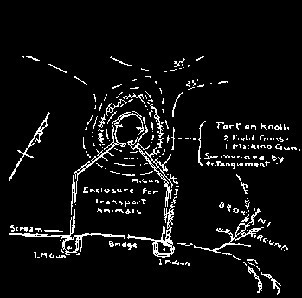 30'
25'
Fort on Knoll
2 Field Guns
1 Maxim Gun.
Surrounded by
Entanglement
Enclosure For
Transport
Animals
Stream
Bridge
1 M. Gun
1 M. Gun